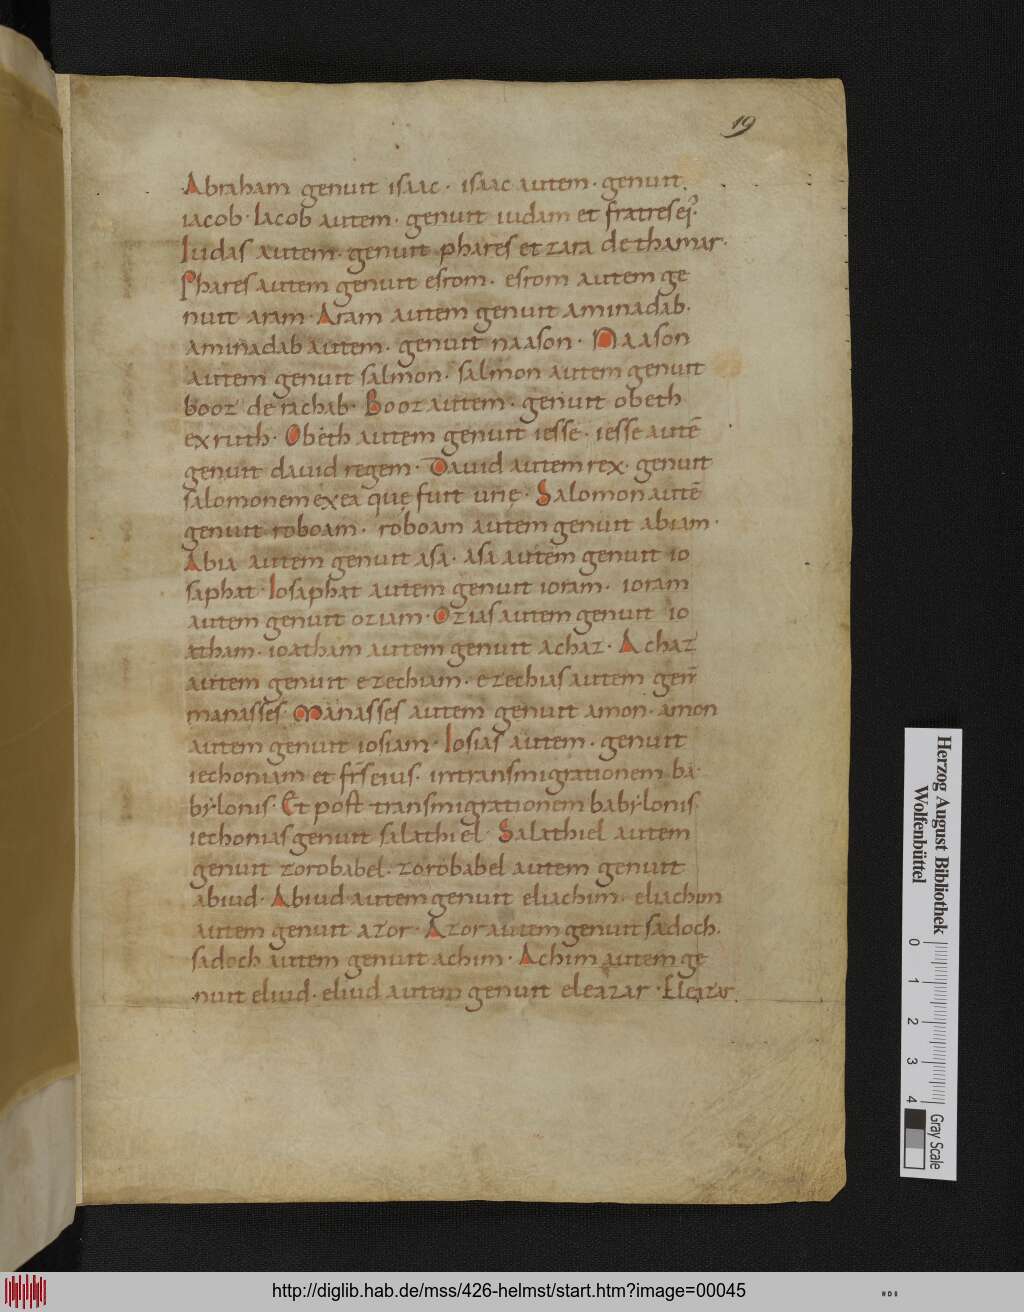 19
Abraham genuit isaac · isaac autem · genuit
iacob · Iacob autem · genuit iudam et fratres ei᾽·
Iudas autem · genuit phares et zara de thamar ·
Phares autem genuit esrom · esrom autem ge
nuit aram · Aram autem genuit aminadab ·
aminadab autem · genuit naason · Naason
autem genuit salmon · salmon autem genuit
booz de rachab · Booz autem · genuit obeth
ex ruth · Obeth autem genuit iesse · iesse autē
genuit dauid regem · Dauid autem rex · genuit
salomonem ex ea quę fuit urię · Salomon autē
genuit roboam · roboam autem genuit abiam ·
Abia autem genuit asa · asa autem genuit io
saphat · Iosaphat autem genuit ioram · ioram
autem genuit oziam · Ozias autem genuit io
atham · ioatham autem genuit achaz · Achaz
autem genuit ezechiam · ezechias autem geñ
manasses · Manasses autem genuit amon · amon
autem genuit iosiam · Iosias autem · genuit
iechoniam et fr̄s eius · in transmigrationem ba
bylonis · Et post transmigrationem babylonis
iechonias genuit salathiel · Salathiel autem
genuit zorobabel · zorobabel autem genuit
abiud · Abiud autem genuit eliachim · eliachim
autem genuit azor · Azor autem genuit sadoch ·
sadoch autem genuit achim · Achim autem ge
nuit eliud · eliud autem genuit eleazar · Eleazar
Herzog August Bibliothek
Wolfenbüttel
0 1 2 3 4
Gray Scale
http://diglib.hab.de/mss/426-helmst/start.htm?image=00045